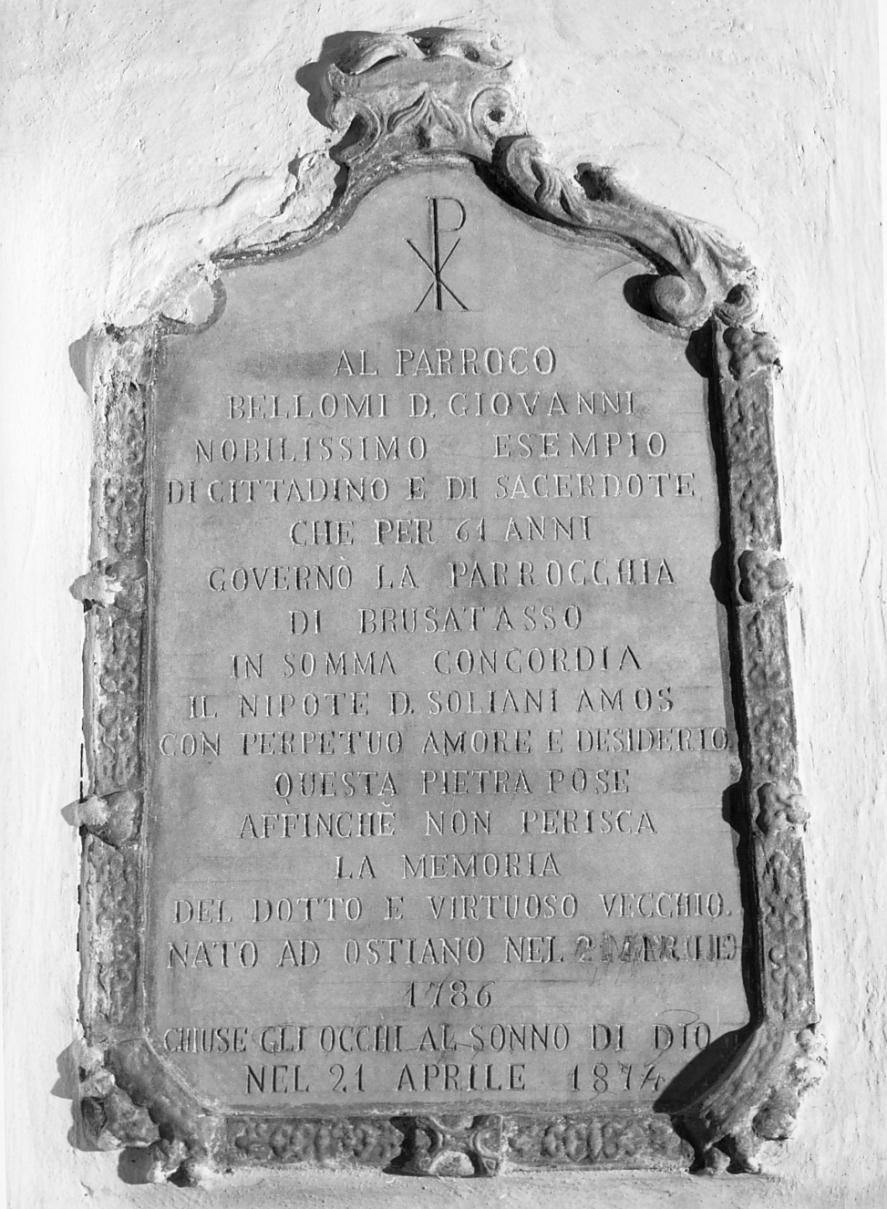 AL PARROCO
BELLOMI D. GIOVANNI
NOBILISSIMO ESEMPIO
DI CITTADINO E DI SACERDOTE
CHE PER 61 ANNI
GOVERNÒ LA PARROCCHIA
DI BRUSATASSO
IN SOMMA CONCORDIA
IL NIPOTE D. SOLIANI AMOS
CON PERPETUO AMORE E DESIDERIO
QUESTA PIETRA POSE
AFFINCHÈ NON PERISCA
LA MEMORIA
DEL DOTTO E VIRTUOSO VECCHIO.
NATO AD OSTIANO NEL
1786
CHIUSE GLI OCCHI AL SONNO DI DIO
NEL 21 APRILE 1874